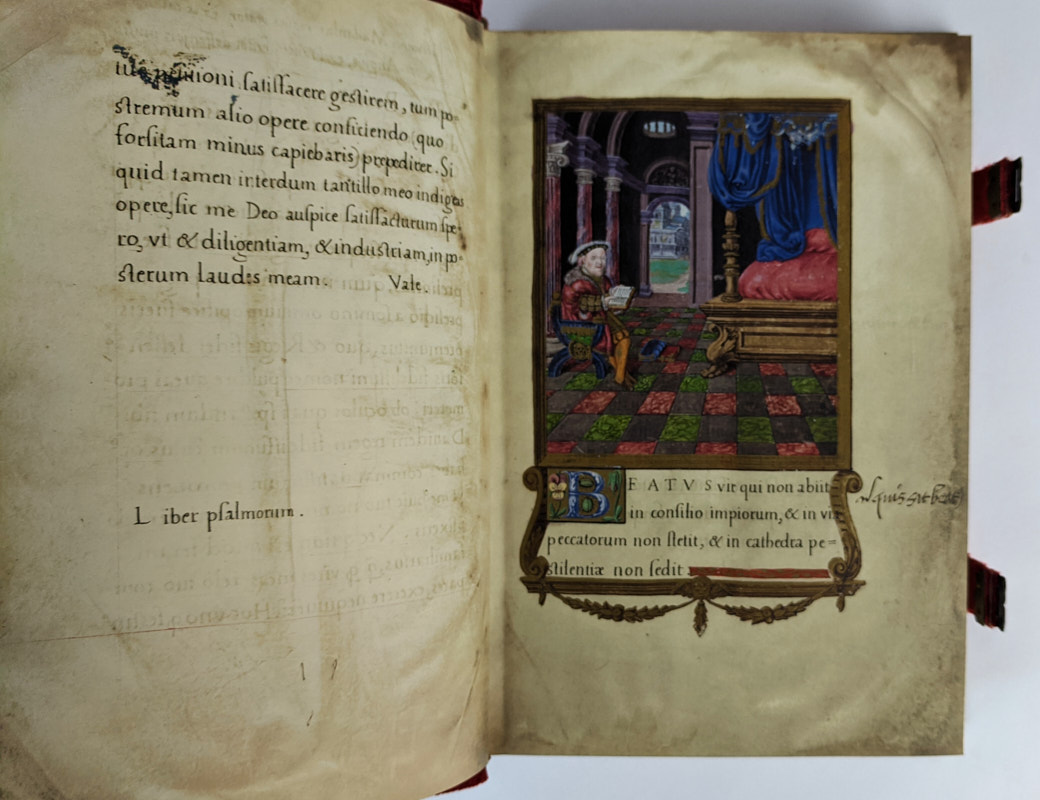 satisfacere gestirem, tum po-
stremum alio opere conficiendo quo
forsitam minus capiebaris) prępedirer. Si
quid tamen interdum tantillo meo indigeas
opere, sic me Deo auspice satisfacturum spe-
ro, vt & diligentiam, & industriam, in po-
sterum laudes meam. Vale.
Liber psalmorum.
BEATVS vir qui non abiit
in consilio impiorum, & in via
peccatorum non stetit, & in cathedra pe=
stilentiæ non sedit
quis sit